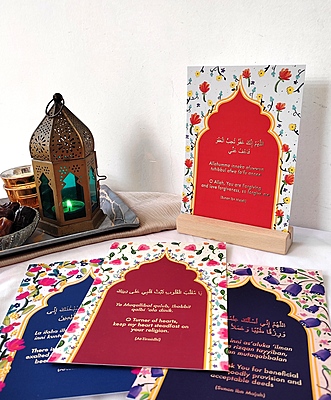 اللَّهُمَّ إِنَّكَ عَفُوٌّ تُحِبُّ الْعَفْوَ
فَاعْفُ عَنِّي
Allahumma innaka afuwwun
tuhibbul afwa fa'fu annee
O Allah, You are forgiving
and love forgiveness, so forgive me
يَا مُقَلِّبَ الْقُلُوبِ ثَبِّتْ قَلْبِي عَلَى دِينِكَ
Ya Muqallibal qulub, thabbit
qalbi 'ala dinik.
O Turner of hearts,
keep my heart steadfast on
your religion.
(At-Tirmidhi)
La ilaha
There is
exalted
been
اللَّهُمَّ إِنِّي
وَرِزْقًا طَيِّبًا
inni as'aluka
rizqan tayyiban,
mutaqabbalan
You for beneficial
goodly provision and
acceptable deeds
(Sunan Ibn Majah)